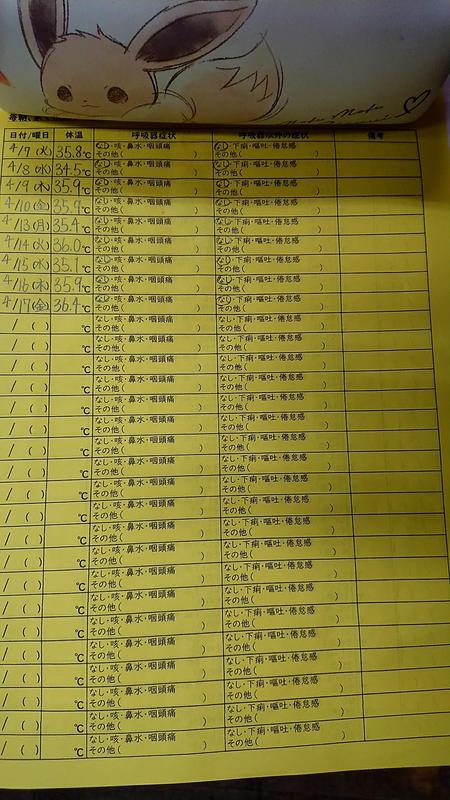 毎朝、
日付/曜日 体温 呼吸器症状 呼吸器以外の症状 備考
4/7 (火) 35.8℃ なし・咳・鼻水・咽頭痛 なし・下痢・嘔吐・倦怠感
その他( ) その他( )
4/8 (水) 34.5℃ なし・咳・鼻水・咽頭痛 なし・下痢・嘔吐・倦怠感
その他( ) その他( )
4/9 (木) 35.9℃ なし・咳・鼻水・咽頭痛 なし・下痢・嘔吐・倦怠感
その他( ) その他( )
4/10 (金) ℃ なし・咳・鼻水・咽頭痛 なし・下痢・嘔吐・倦怠感
その他( ) その他( )
4/13 (月) 35.4℃ なし・咳・鼻水・咽頭痛 なし・下痢・嘔吐・倦怠感
その他( ) その他( )
4/14 (火) 36.0℃ なし・咳・鼻水・咽頭痛 なし・下痢・嘔吐・倦怠感
その他( ) その他( )
4/15 (水) 35.1℃ なし・咳・鼻水・咽頭痛 なし・下痢・嘔吐・倦怠感
その他( ) その他( )
4/16 (木) 35.9℃ なし・咳・鼻水・咽頭痛 なし・下痢・嘔吐・倦怠感
その他( ) その他( )
4/17 (金) 36.4℃ なし・咳・鼻水・咽頭痛 なし・下痢・嘔吐・倦怠感
その他( ) その他( )
/ ( ) ℃ なし・咳・鼻水・咽頭痛 なし・下痢・嘔吐・倦怠感
その他( ) その他( )
/ ( ) ℃ なし・咳・鼻水・咽頭痛 なし・下痢・嘔吐・倦怠感
その他( ) その他( )
/ ( ) ℃ なし・咳・鼻水・咽頭痛 なし・下痢・嘔吐・倦怠感
その他( ) その他( )
/ ( ) ℃ なし・咳・鼻水・咽頭痛 なし・下痢・嘔吐・倦怠感
その他( ) その他( )
/ ( ) ℃ なし・咳・鼻水・咽頭痛 なし・下痢・嘔吐・倦怠感
その他( ) その他( )
/ ( ) ℃ なし・咳・鼻水・咽頭痛 なし・下痢・嘔吐・倦怠感
その他( ) その他( )
/ ( ) ℃ なし・咳・鼻水・咽頭痛 なし・下痢・嘔吐・倦怠感
その他( ) その他( )
/ ( ) ℃ なし・咳・鼻水・咽頭痛 なし・下痢・嘔吐・倦怠感
その他( ) その他( )
/ ( ) ℃ なし・咳・鼻水・咽頭痛 なし・下痢・嘔吐・倦怠感
その他( ) その他( )
/ ( ) ℃ なし・咳・鼻水・咽頭痛 なし・下痢・嘔吐・倦怠感
その他( ) その他( )
/ ( ) ℃ なし・咳・鼻水・咽頭痛 なし・下痢・嘔吐・倦怠感
その他( ) その他( )
/ ( ) ℃ なし・咳・鼻水・咽頭痛 なし・下痢・嘔吐・倦怠感
その他( ) その他( )
/ ( ) ℃ なし・咳・鼻水・咽頭痛 なし・下痢・嘔吐・倦怠感
その他( ) その他( )
/ ( ) ℃ なし・咳・鼻水・咽頭痛 なし・下痢・嘔吐・倦怠感
その他( ) その他( )
/ ( ) ℃ なし・咳・鼻水・咽頭痛 なし・下痢・嘔吐・倦怠感
その他( ) その他( )
/ ( ) ℃ なし・咳・鼻水・咽頭痛 なし・下痢・嘔吐・倦怠感
その他( ) その他( )
/ ( ) ℃ なし・咳・鼻水・咽頭痛 なし・下痢・嘔吐・倦怠感
その他( ) その他( )
/ ( ) ℃ なし・咳・鼻水・咽頭痛 なし・下痢・嘔吐・倦怠感
その他( ) その他( )
/ ( ) ℃ なし・咳・鼻水・咽頭痛 なし・下痢・嘔吐・倦怠感
その他( ) その他( )
/ ( ) ℃ なし・咳・鼻水・咽頭痛 なし・下痢・嘔吐・倦怠感
その他( ) その他( )
/ ( ) ℃ なし・咳・鼻水・咽頭痛 なし・下痢・嘔吐・倦怠感
その他( ) その他( )